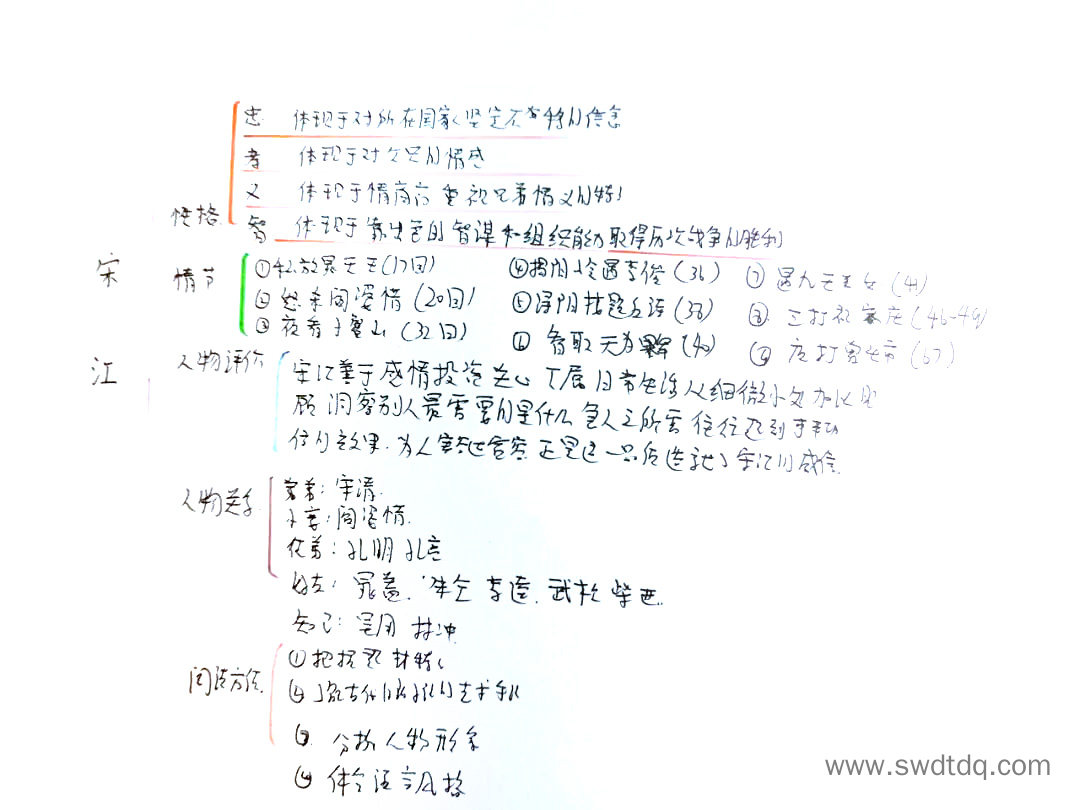 宋江
性格
忠 体现于对所在国家坚定不移的信念
孝 体现于对父兄的情感
义 体现于情商高 重视兄弟情义的特
智 体现于靠出色的智谋和组织能力取得历次战争的胜利
情节
①私放晁天王(17回)
②怒杀阎婆惜(20回)
③夜看小鳌山(32回)
④揭阳岭遇李俊(36)
⑤浔阳楼题反诗(38)
⑥智取无为军(40)
⑦遇九天玄女(41)
⑧三打祝家庄(46-49)
⑨夜打曾头市(67)
人物评价
宋江善于感情投资 关心下属日常生活 从细微小处加以照
顾 洞察别人最需要的是什么 急人之所需 往往起到事半功
倍的效果. 为人 正是这一品质造就了宋江的威信.
人物关系
弟: 宋清.
小妾: 阎婆惜.
兄弟: 孔明 孔亮
好友: 晁盖. 朱仝 李逵. 武松 柴进.
知己: 吴用 林冲
阅读方法.
①把握题材特
② 古代小说的艺术手
③ 分析人物形象
④ 体会语言风格
www.swdtdq.com